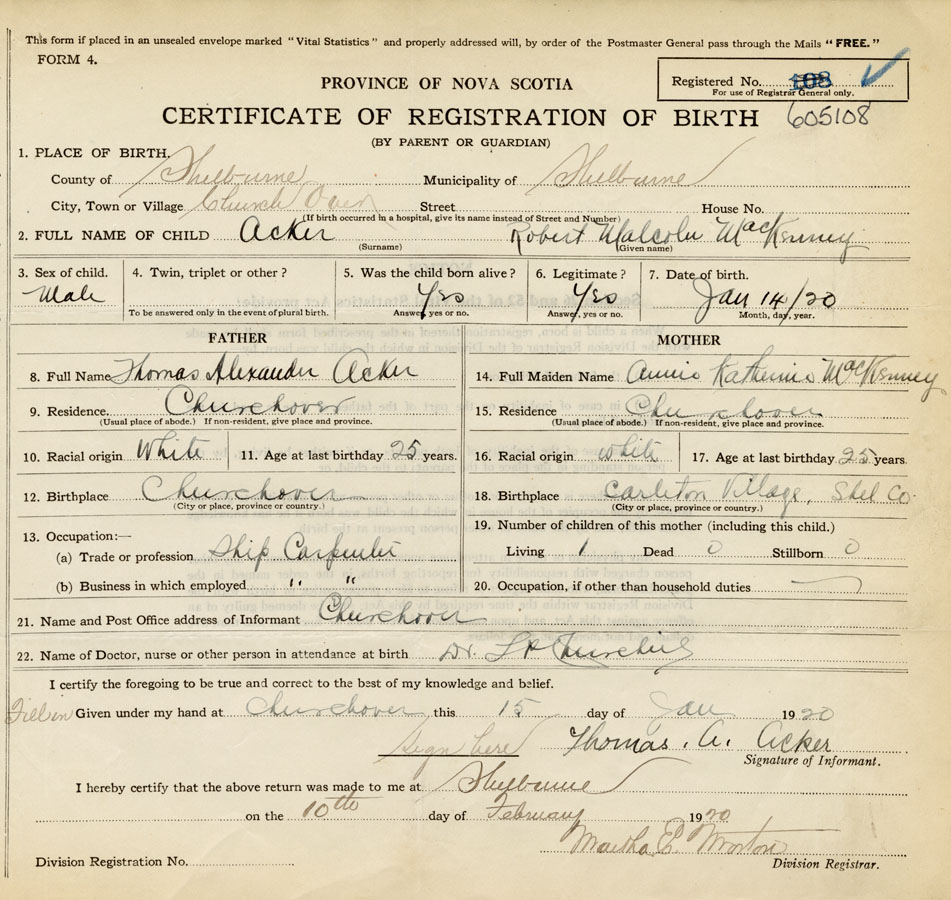 This form if placed in an unsealed envelope marked "Vital Statistics" and properly addressed will, by order of the Postmaster General pass through the Mails "FREE."
FORM 4.
Registered No. 108
For use of Registrar General only.
PROVINCE OF NOVA SCOTIA
CERTIFICATE OF REGISTRATION OF BIRTH 605108
(BY PARENT OR GUARDIAN)
1. PLACE OF BIRTH.
County of Shelburne Municipality of Shelburne
City, Town or Village Church Over Street House No.
(If birth occurred in a hospital, give its name instead of Street and Number)
2. FULL NAME OF CHILD Acker Robert Malcolm MacKenney
(Surname) (Given name)
3. Sex of child. 4. Twin, triplet or other ? 5. Was the child born alive ? 6. Legitimate ? 7. Date of birth.
Male Yes Yes Jan 14/20
To be answered only in the event of plural birth. Answer, yes or no. Answer, yes or no. Month, day, year.
FATHER MOTHER
8. Full Name Thomas Alexander Acker 14. Full Maiden Name Annie Katherine MacKenney
9. Residence. Churchover 15. Residence Churchover
(Usual place of abode.) If non-resident, give place and province. (Usual place of abode.) If non-resident, give place and province.
10. Racial origin White 11. Age at last birthday 25 years. 16. Racial origin white 17. Age at last birthday 25 years.
12. Birthplace Churchover 18. Birthplace Carleton Village, Shel Co.
(City or place, province or country.) (City or place, province or country.)
13. Occupation:— 19. Number of children of this mother (including this child.)
(a) Trade or profession Ship Carpenter Living 1 Dead 0 Stillborn 0
(b) Business in which employed " " 20. Occupation, if other than household duties
21. Name and Post Office address of Informant Churchover
22. Name of Doctor, nurse or other person in attendance at birth Dr. Churchill
I certify the foregoing to be true and correct to the best of my knowledge and belief.
Fill in Given under my hand at Churchover this 15 day of Jan 1920
Sign here Thomas. A. Acker
Signature of Informant.
I hereby certify that the above return was made to me at Shelburne
on the 10th day of February 1920
Martha E. Morton
Division Registration No. Division Registrar.